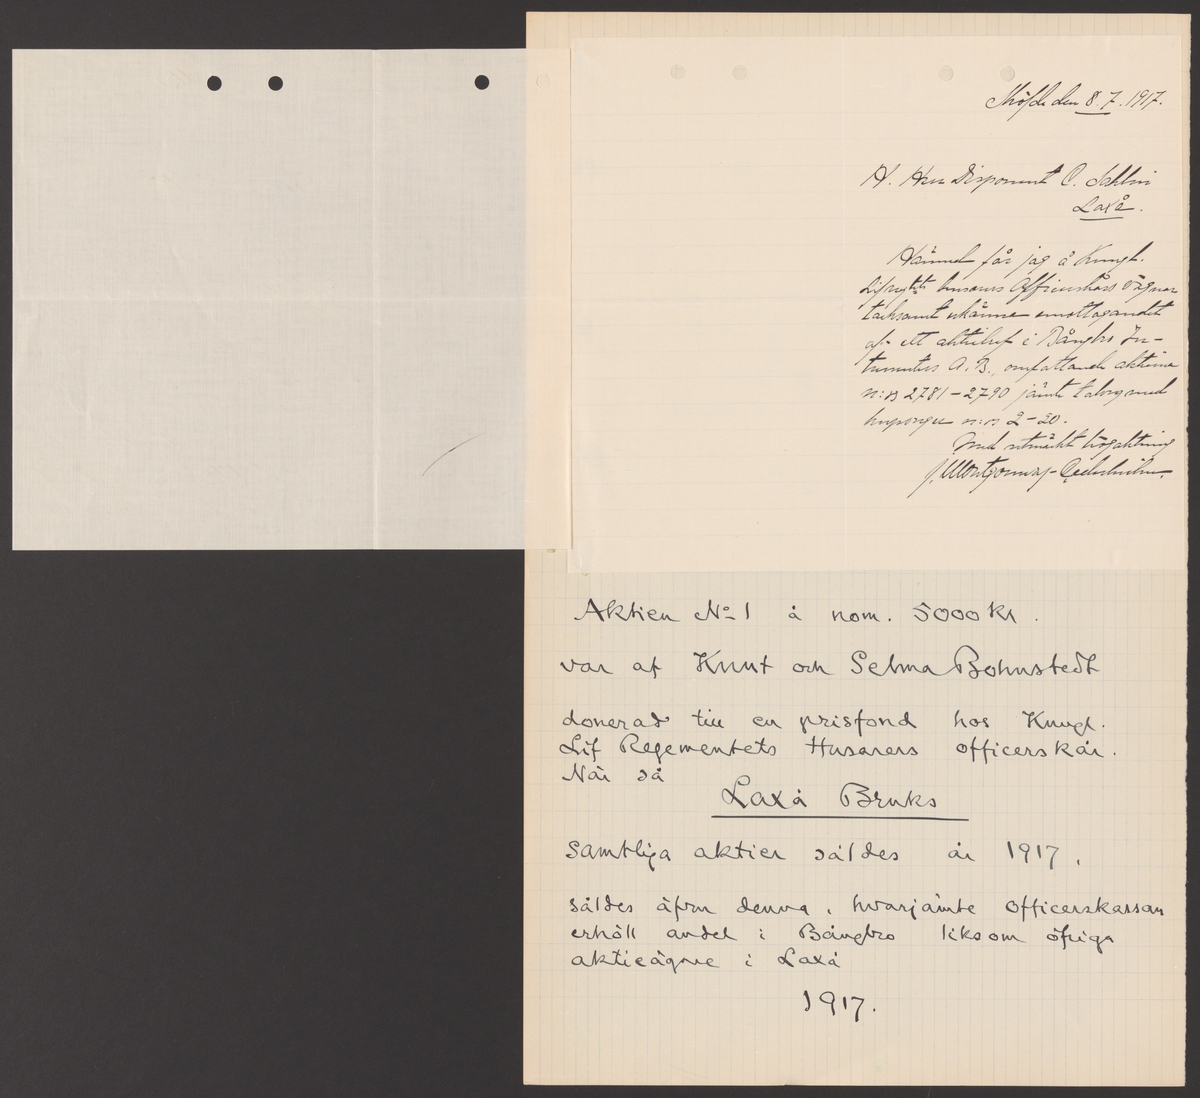 Skövde den 8.7.1917.
H. Herr Disponent C. Sahlin
Laxå.
Härmed får jag å Kungl.
Lifregtets husarers Officerskårs vägnar
tacksamt erkänna emottagandet
af ett aktiebref i Bångbro In-
tressenters A.B., omfattande aktierna
n:os 2781-2790 jämte talong med
kuponger n:os 2-20.
Med utmärkt högaktning
J. Montgomery-Cederhielm.
Aktien No 1 å nom. 5000 Kr.
var af Knut och Selma Bohnstedt
donerad till en prisfond hos Kungl.
Lif Regementets Husarers officerskår.
När så
Laxå Bruks
samtliga aktier såldes år 1917,
såldes äfven denna, hvarjämte officerskassan
erhöll andel i Bångbro liksom öfriga
aktieägare i Laxå
1917.